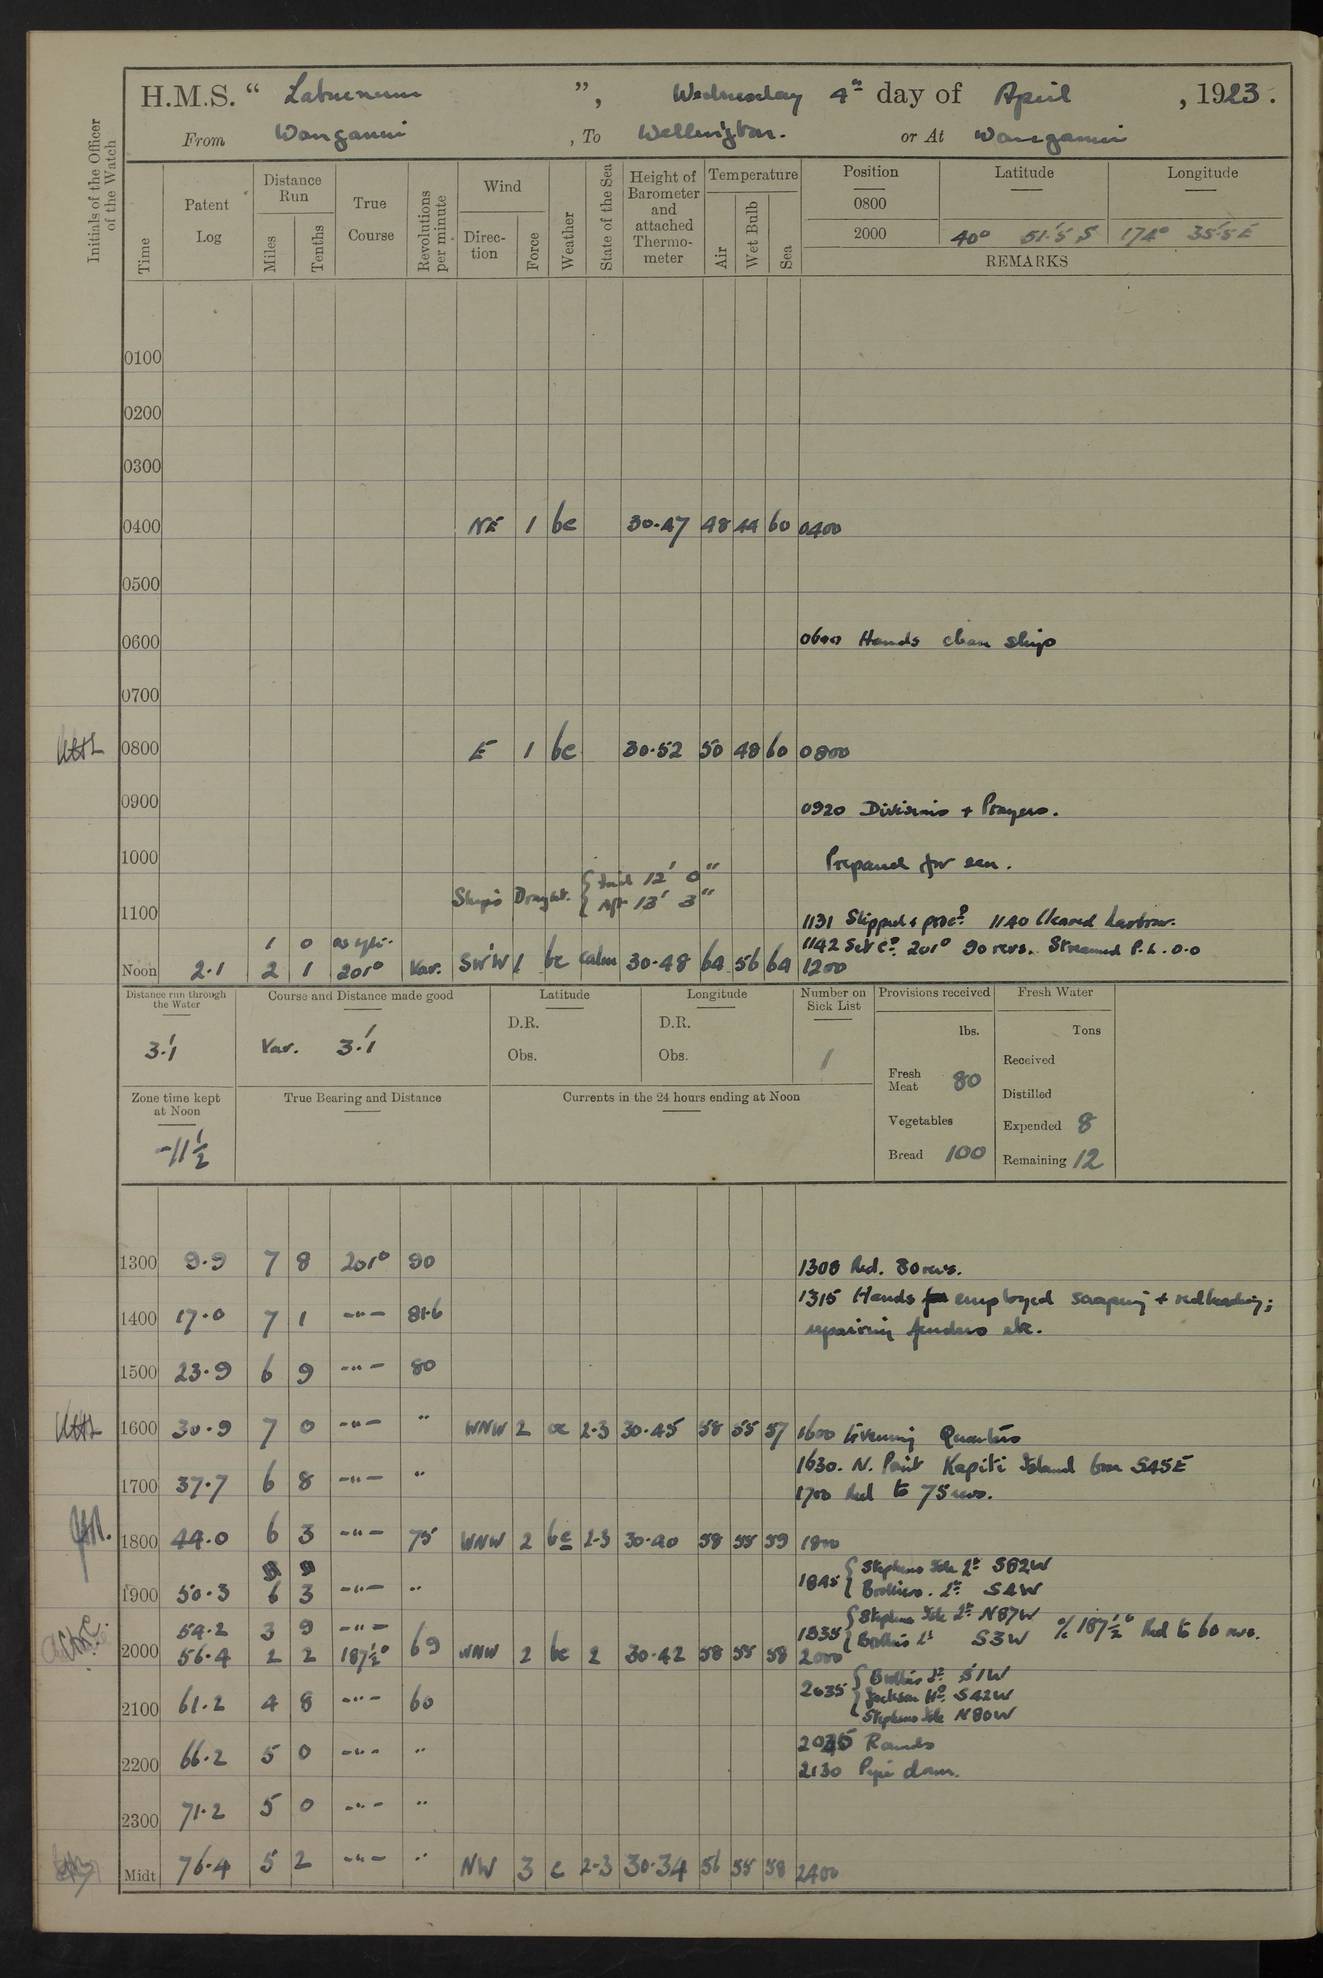 H.M.S. “ Laburnum ”, Wednesday 4th day of April , 1923.
From Wanganui , To Wellington. or At Wanganui
Initials of the Officer of the Watch
Time
Patent Log
Distance Run
Miles
Tenths
True Course
Revolutions per minute
Wind
Direc- tion
Force
Weather
State of the Sea
Height of Barometer and attached Thermo- meter
Temperature
Air
Wet Bulb
Sea
Position Latitude Longitude
0800
2000 40° 51'·5 S 174° 35'·5 E
REMARKS
0100
0200
0300
0400 NE 1 bc 30·47 48 44 60 0400
0500
0600 0600 Hands clean ship
0700
0800 E 1 bc 30·52 50 48 60 0800
0900 0920 Divisions + Prayers.
1000 Prepared for sea.
Ship's Draught. { Fwd 12' 0"
Aft 13' 3"
1100 1131 Slipped + procd 1140 Cleared harbour.
1 0 as req. 1142 Set Co. 201° 90 revs. Streamed P.L. 0·0
Noon 2·1 2 1 201° Var. SW'W 1 bc Calm 30·48 64 56 64 1200
Distance run through the Water
3·1
Course and Distance made good
Var. 3·1
Latitude
D.R.
Obs.
Longitude
D.R.
Obs.
Number on Sick List
1
Provisions received
lbs.
Fresh Meat 80
Vegetables
Bread 100
Fresh Water
Tons
Received
Distilled
Expended 8
Remaining 12
Zone time kept at Noon
-11½
True Bearing and Distance
Currents in the 24 hours ending at Noon
1300 9·9 7 8 201° 90 1308 Red. 80 revs.
1400 17·0 7 1 -"- 81·6 1315 Hands employed scraping + redleading;
repairing fenders etc.
1500 23·9 6 9 -"- 80
1600 30·9 7 0 -"- " WNW 2 oc 2-3 30·45 58 55 57 1600 Evening Quarters
1630. N. Point Kapiti Island bore S45E
1700 37·7 6 8 -"- " 1700 Red to 75 revs.
1800 44·0 6 3 -"- 75 WNW 2 bc 2-3 30·40 58 55 59 1800
1845 { Stephens Isle Lt S82W
Brothers. Lt S4W
1900 50·3 6 3 -"- "
54·2 3 9 -"- 1935 { Stephens Isle Lt N87W
Brothers Lt S3W a/c 187½° Red to 60 revs.
2000 56·4 2 2 187½° 69 WNW 2 bc 2 30·42 58 55 58 2000
2035 { Brothers Lt S1W
Jackson Hd S42W
Stephens Isle N80W
2100 61·2 4 8 -"- 60
2045 Rounds
2200 66·2 5 0 -"- " 2130 Pipe down.
2300 71·2 5 0 -"- "
Midt 76·4 5 2 -"- " NW 3 c 2-3 30·34 56 55 58 2400